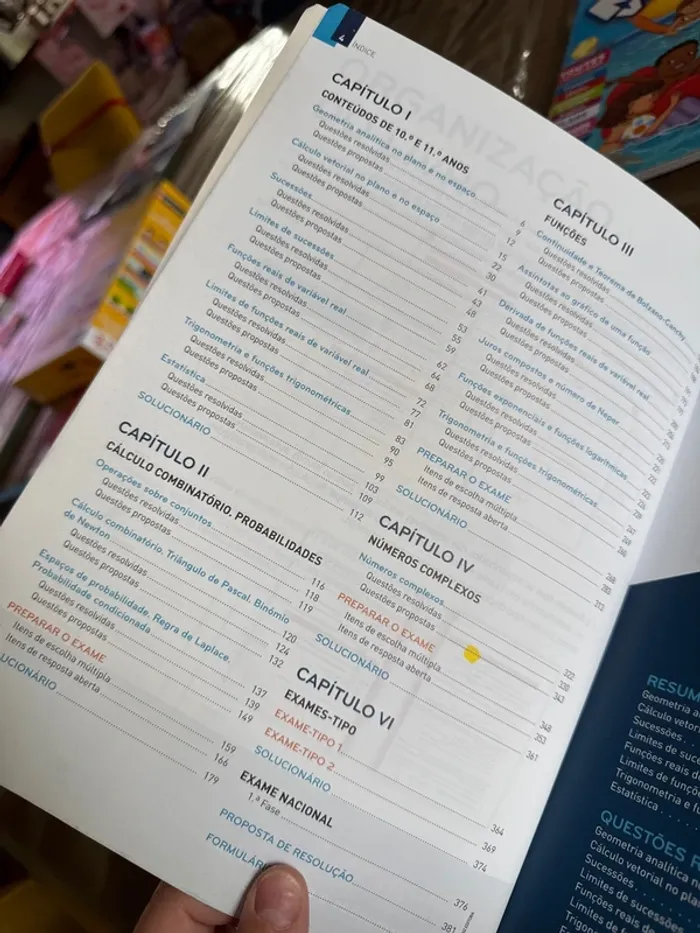 4
ÍNDICE
CAPÍTULO I
CONTEÚDOS DE 10.º E 11.º ANOS
Geometria analítica no plano e no espaço 6
Questões resolvidas 9
Questões propostas 12
Cálculo vetorial no plano e no espaço 15
Questões resolvidas 22
Questões propostas 30
Sucessões 41
Questões resolvidas 43
Questões propostas 48
Limites de sucessões 53
Questões resolvidas 55
Questões propostas 59
Funções reais de variável real 62
Questões resolvidas 64
Questões propostas 68
Limites de funções reais de variável real 72
Questões resolvidas 77
Questões propostas 81
Trigonometria e funções trigonométricas 83
Questões resolvidas 90
Questões propostas 95
Estatística 99
Questões resolvidas 103
Questões propostas 109
SOLUCIONÁRIO 112
CAPÍTULO II
CÁLCULO COMBINATÓRIO. PROBABILIDADES
Operações sobre conjuntos 116
Questões resolvidas 118
Questões propostas 119
Cálculo combinatório. Triângulo de Pascal. Binómio
de Newton 120
Questões resolvidas 124
Questões propostas 132
Espaços de probabilidade. Regra de Laplace.
Probabilidade condicionada 137
Questões resolvidas 139
Questões propostas 149
PREPARAR O EXAME
Itens de escolha múltipla 159
Itens de resposta aberta 166
UCIONÁRIO 179
CAPÍTULO III
FUNÇÕES
Continuidade e Teorema de Bolzano-Cauchy
Questões resolvidas
Questões propostas
Assíntotas ao gráfico de uma função
Questões resolvidas
Questões propostas
Derivada de funções reais de variável real
Questões resolvidas
Questões propostas
Juros compostos e número de Neper
Questões resolvidas
Questões propostas
Funções exponenciais e funções logarítmicas
Questões resolvidas
Questões propostas
Trigonometria e funções trigonométricas
Questões resolvidas
Questões propostas
PREPARAR O EXAME
Itens de escolha múltipla
Itens de resposta aberta
SOLUCIONÁRIO 313
CAPÍTULO IV
NÚMEROS COMPLEXOS
Números complexos 322
Questões resolvidas 330
Questões propostas 343
PREPARAR O EXAME
Itens de escolha múltipla 348
Itens de resposta aberta 353
SOLUCIONÁRIO 361
CAPÍTULO VI
EXAMES-TIPO
EXAME-TIPO 1 364
EXAME-TIPO 2 369
SOLUCIONÁRIO 374
EXAME NACIONAL
1.ª Fase 376
PROPOSTA DE RESOLUÇÃO 381
FORMULÁR
RESUM
Geometria an
Cálculo vetoria
Sucessões
Limites de suces
Funções reais d
Limites de funçõ
Trigonometria e f
Estatística
QUESTÕES
Geometria analítica n
Cálculo vetorial no plan
Sucessões
Limites de sucessões
Funções reais de
Limites de fun
Trigono